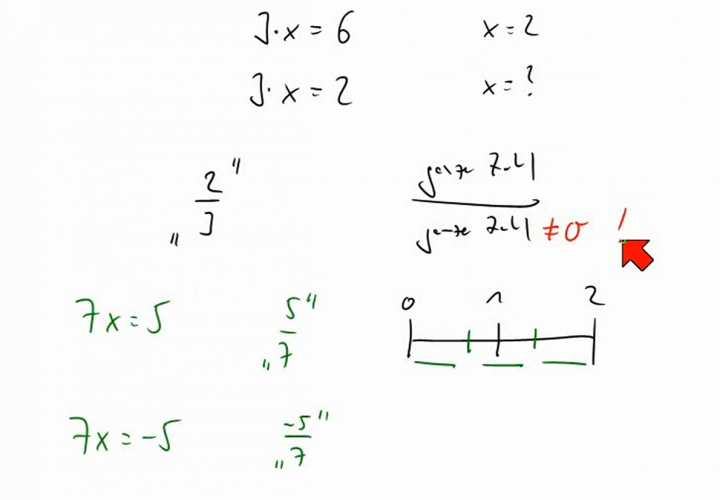 3·x = 6 x = 2
3·x = 2 x = ?
„2/3"
ganze Zahl
ganze Zahl ≠ 0 !
7x = 5 „5/7"
0 1 2
7x = -5 „-5/7"